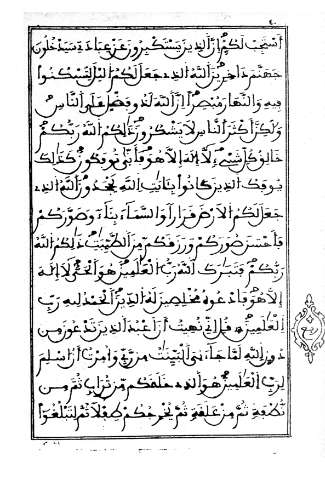 أستجب لكم إن الذين يستكبرون عن عبادتي سيدخلون
جهنم داخرين الله الذي جعل لكم اليل لتسكنوا
فيه والنهار مبصرا إن الله لذو فضل على الناس
ولكن أكثر الناس لا يشكرون ذلكم الله ربكم
خالق كل شيء لا إله إلا هو فأنى توفكون كذلك
يوفك الذين كانوا بئايات الله يجحدون الله الذي
جعل لكم الأرض قرارا والسماء بناء وصوركم
فأحسن صوركم ورزقكم من الطيبات ذلكم الله
ربكم فتبارك الله رب العالمين هو الحي لا إله
إلا هو فادعوه مخلصين له الدين الحمد لله رب
العالمين قل إني نهيت أن أعبد الذين تدعون من
دون الله لما جاءني البينات من ربي وأمرت أن أسلم
لرب العالمين هو الذي خلقكم من تراب ثم من
نطفة ثم من علقة ثم يخرجكم طفلا ثم لتبلغوا